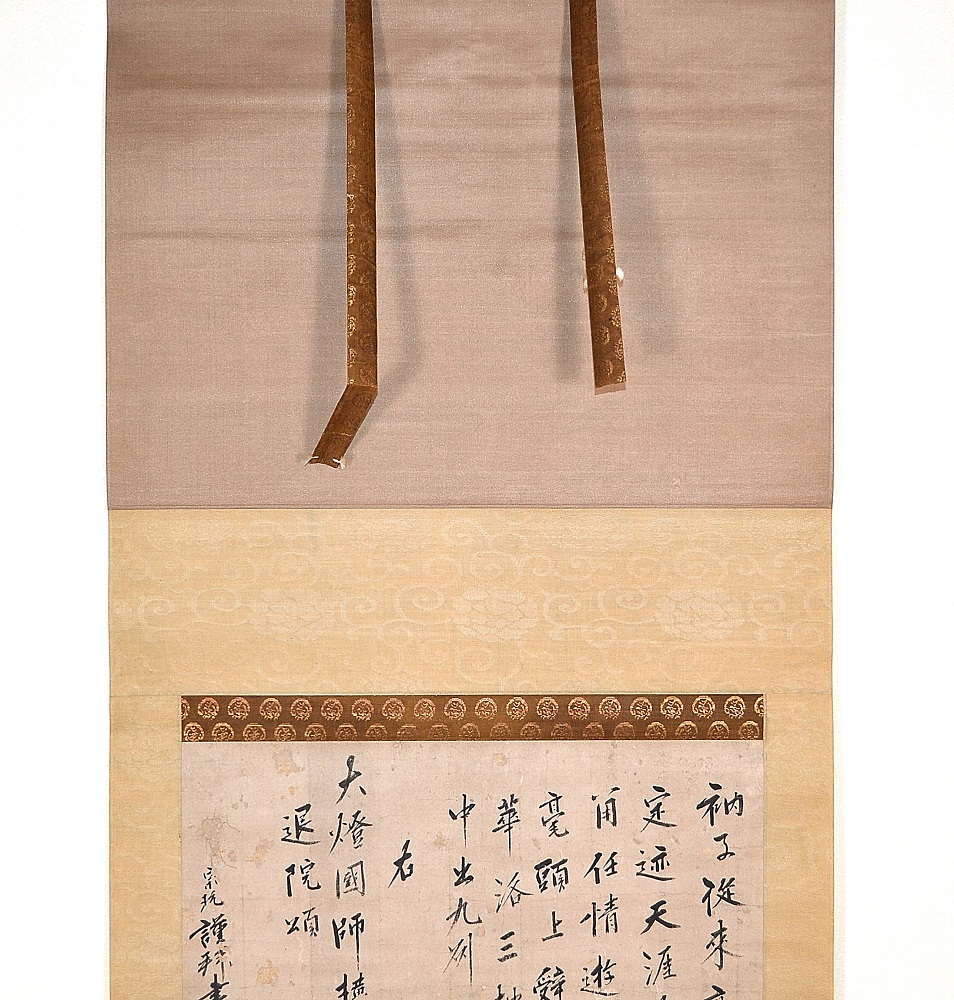 衲子從來
定迹天涯
甪任情遊
毫頭上辭
華洛三
中出九州
右
大燈國師
退院頌
宗玩謹拜書